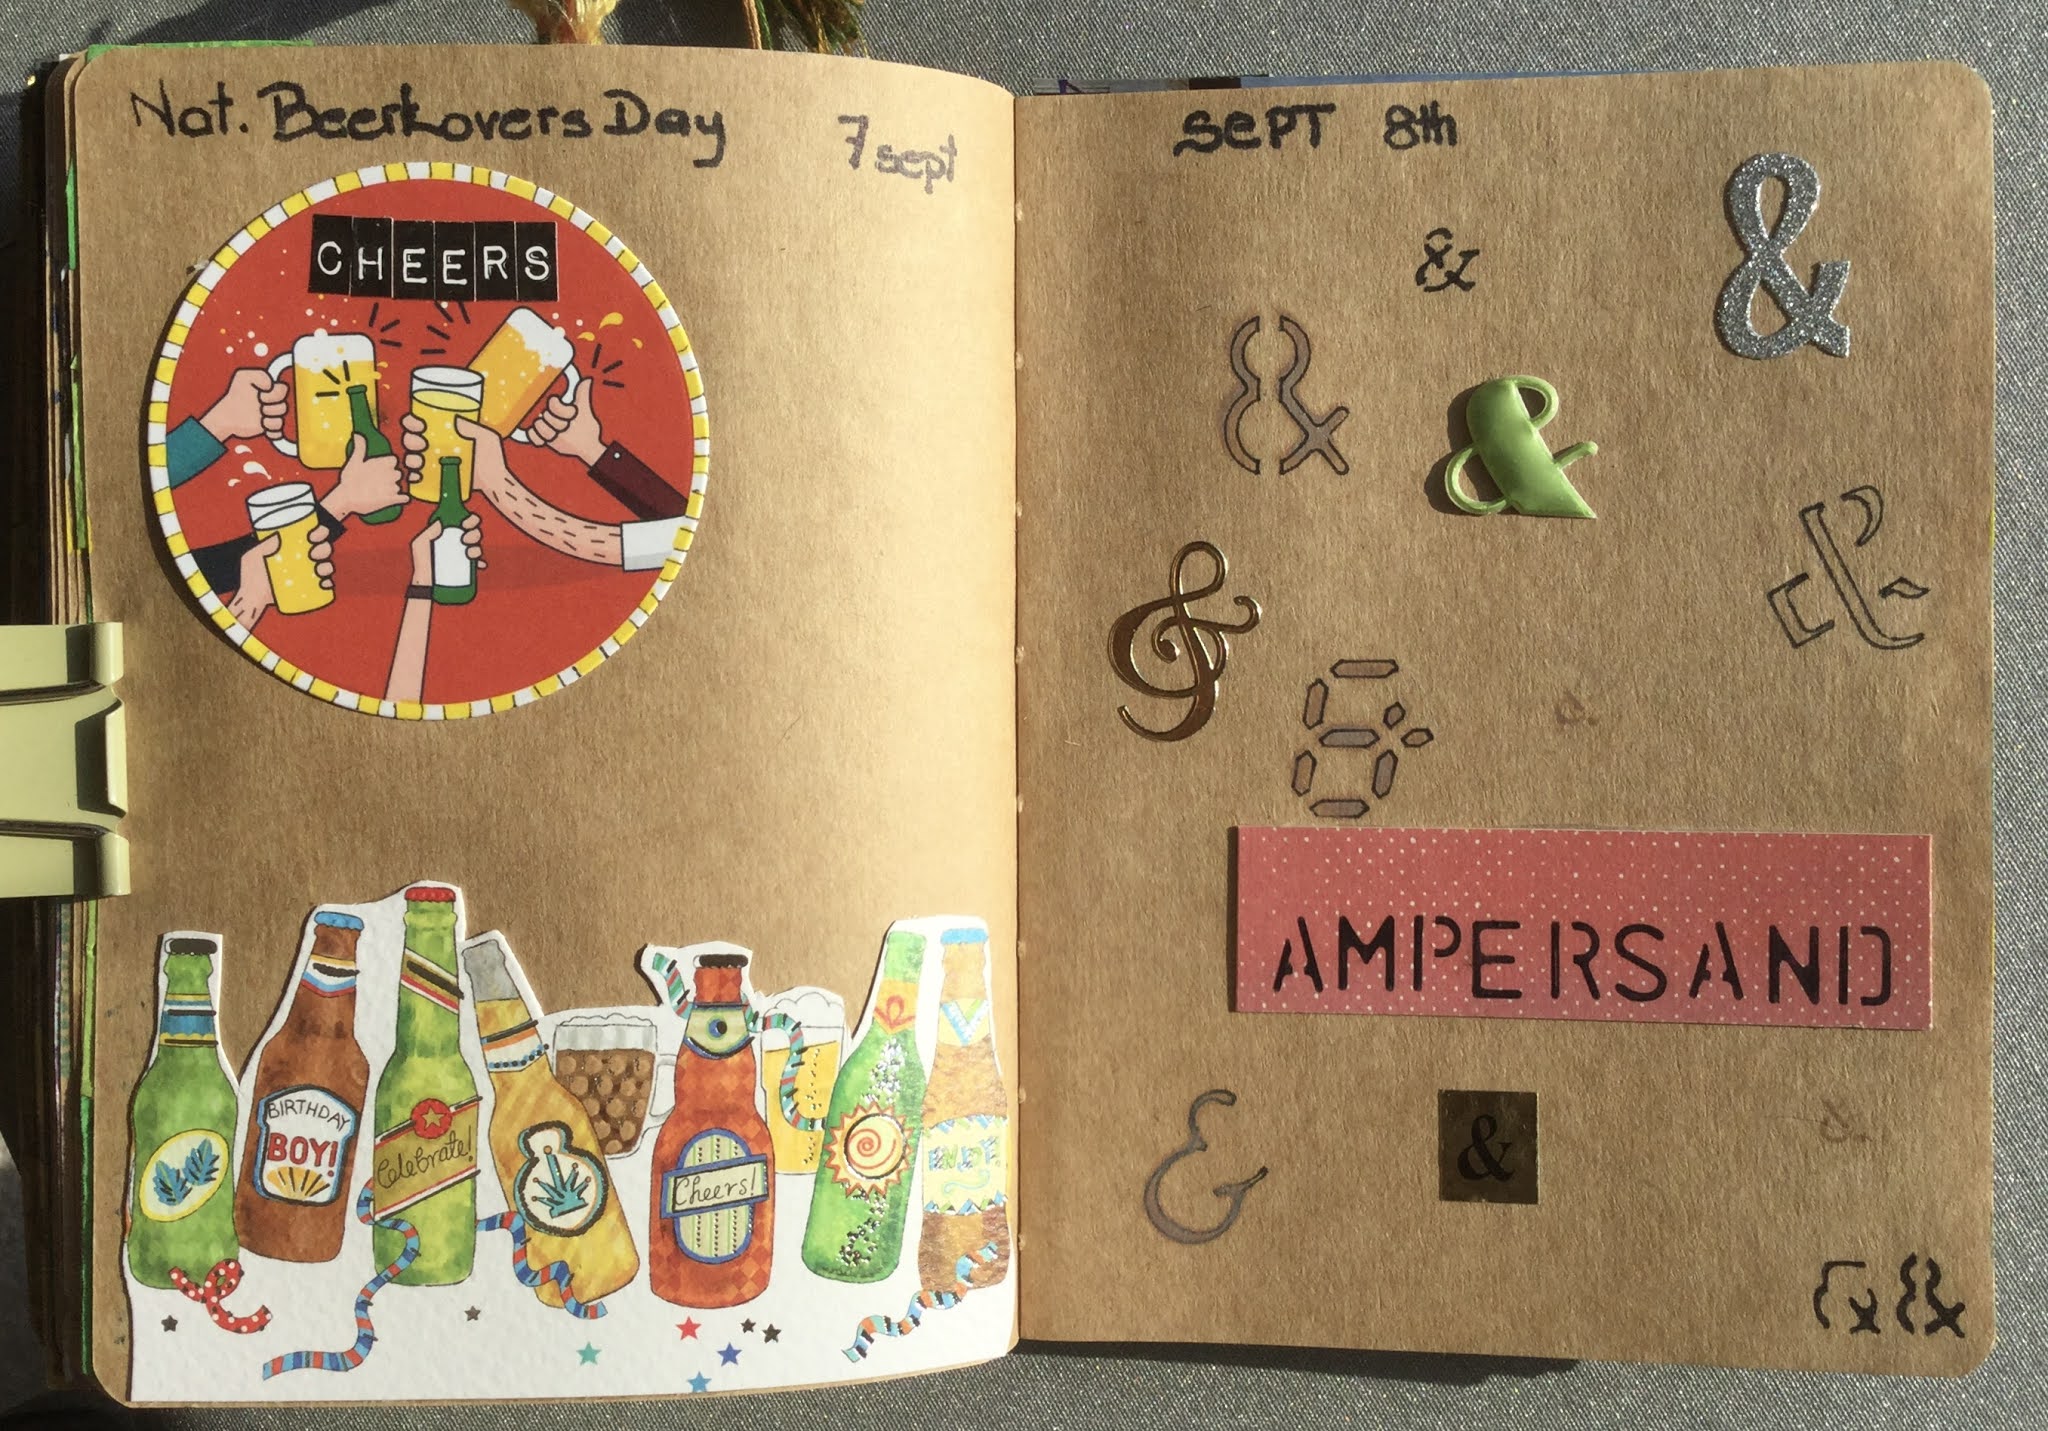 Nat. BeerLovers Day
7 sept
CHEERS
BIRTHDAY
BOY!
Celebrate!
Cheers!
ENJOY!
SEPT 8th
&
&
&
&
&
&
&
AMPERSAND
&
&
& &